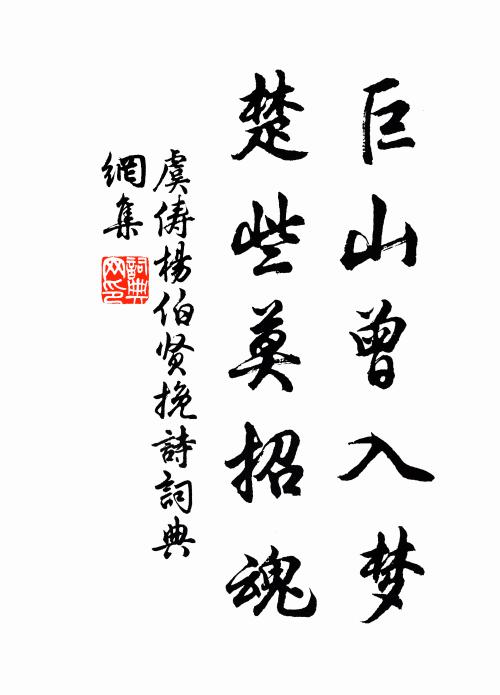 巨山曾入梦
楚些莫招魂
虞俦杨伯贤挽詩詞典
網集
詞典
网印